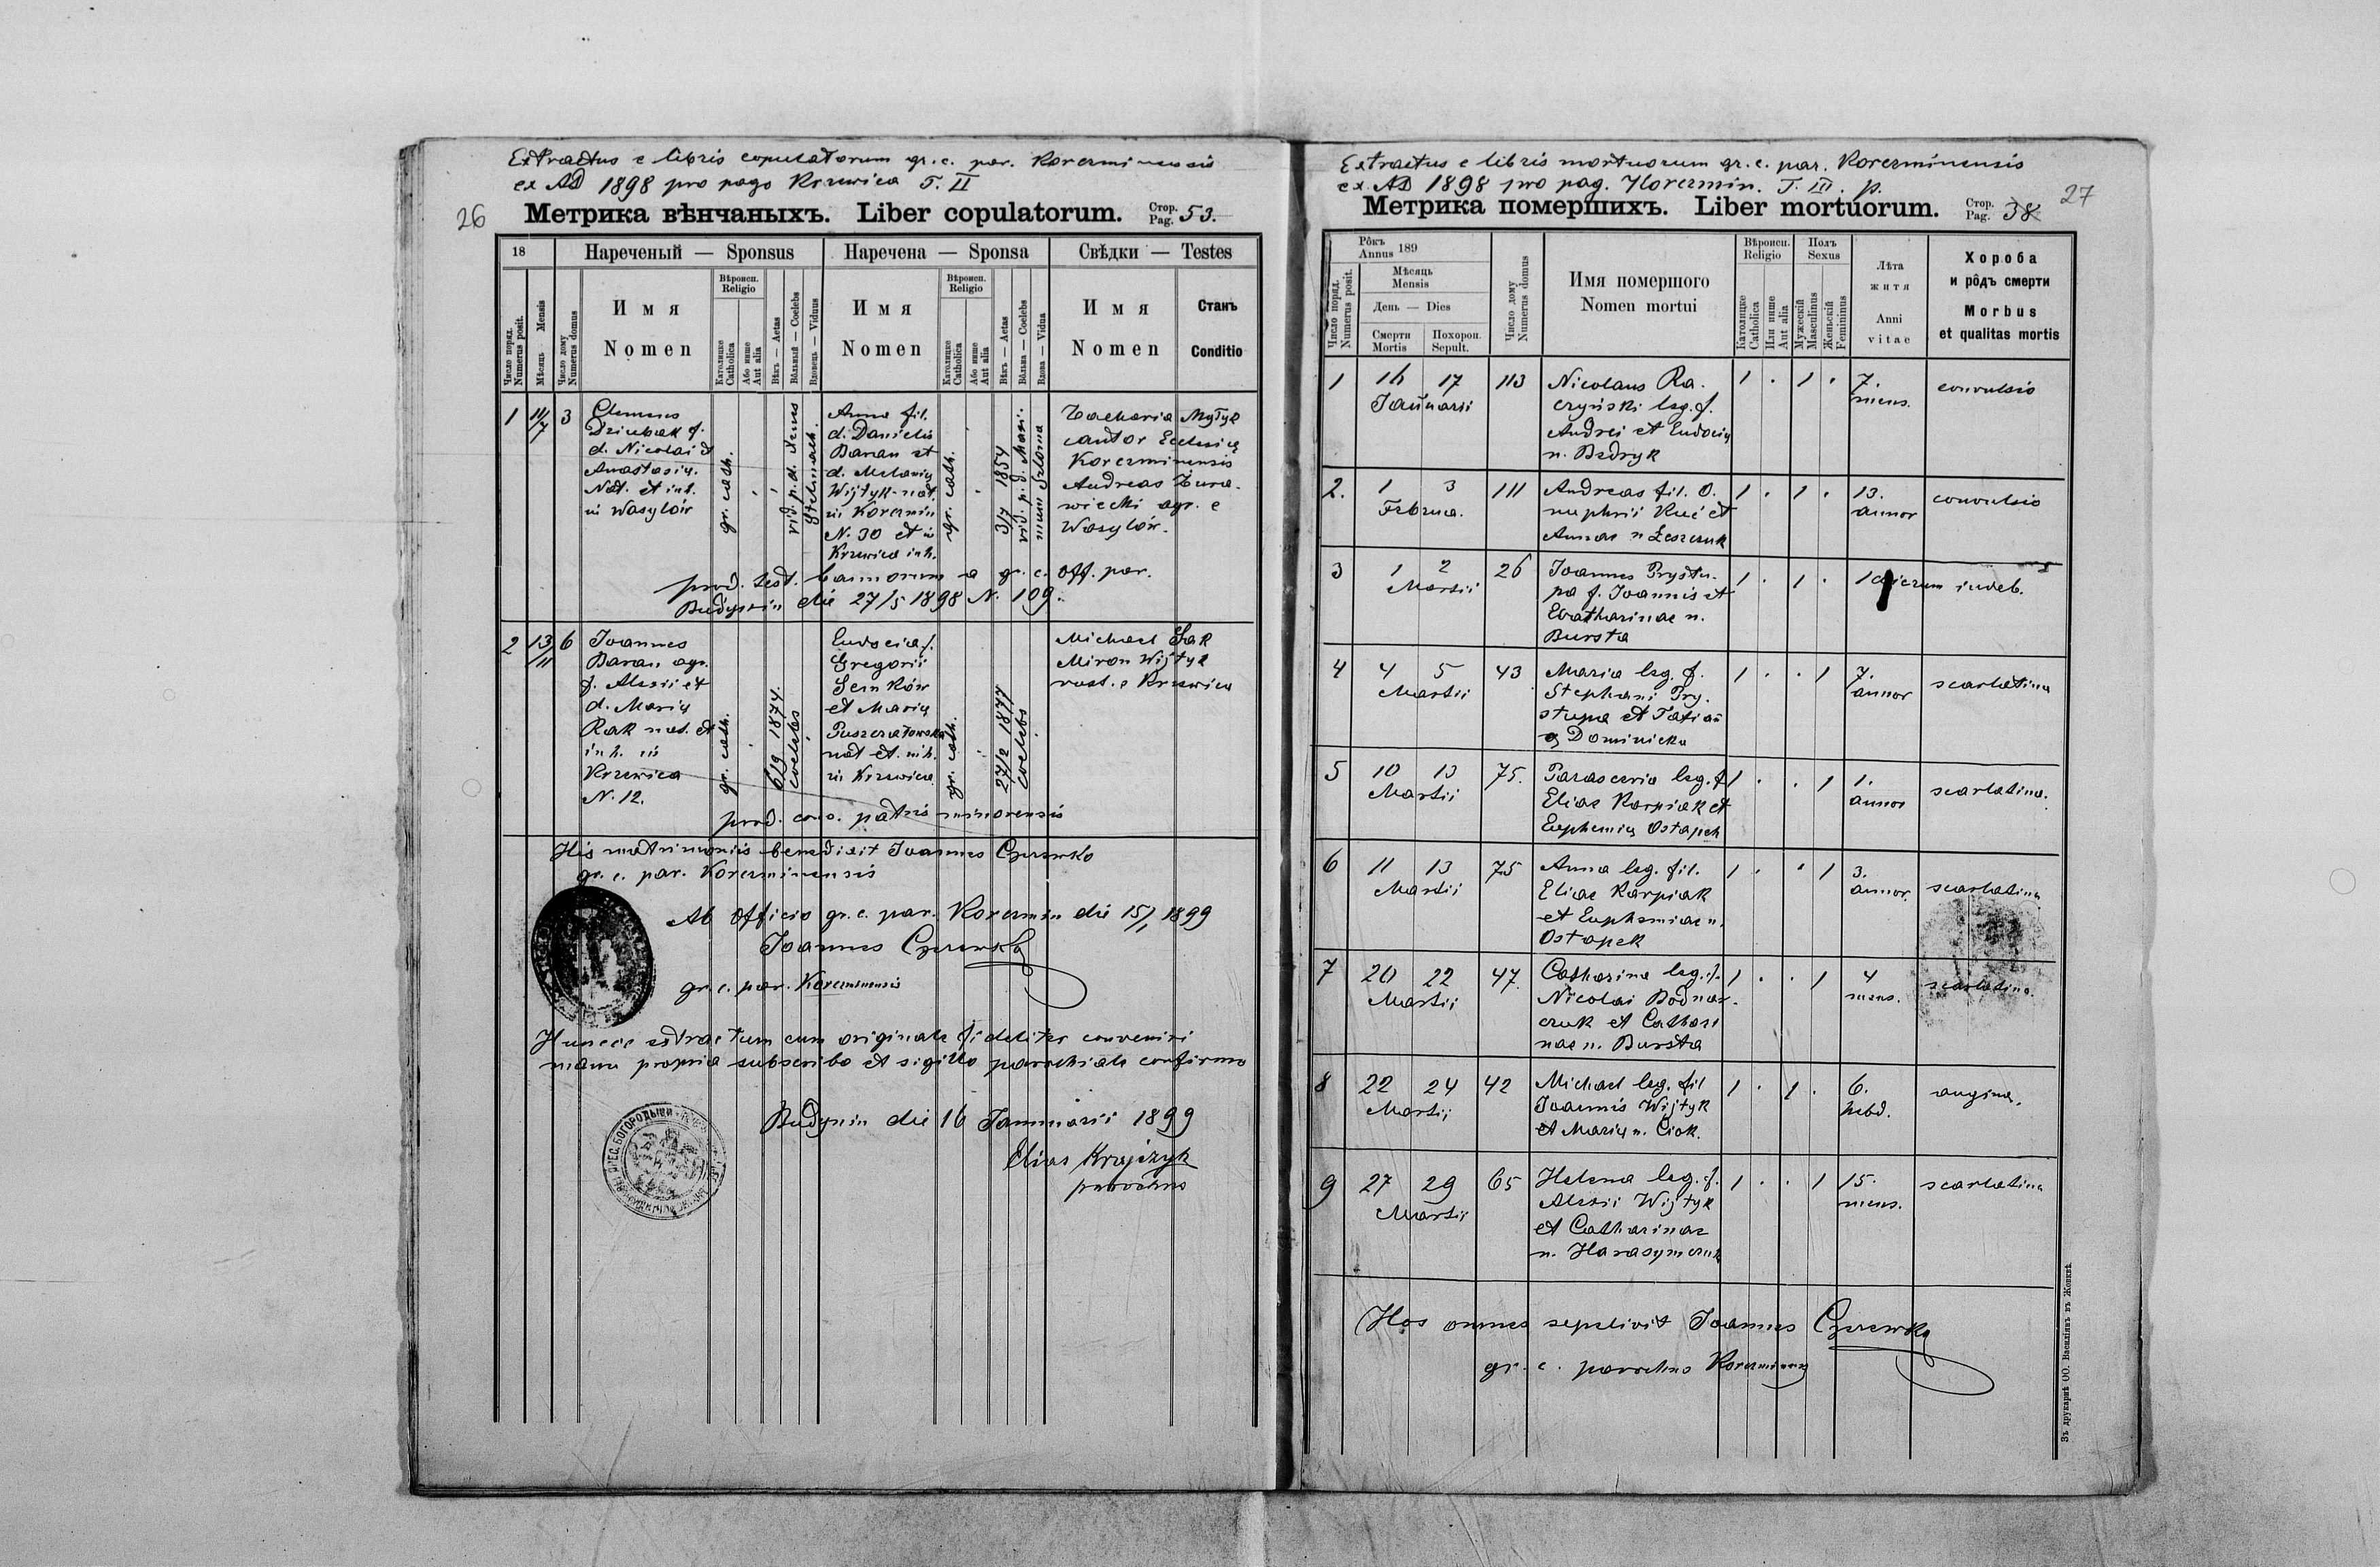 Extractus e libris copulatorum gr. c. par. Korczminensis
ex AD 1898 pro pago Krzewica T. II
26
Метрика вѣнчаныхъ. Liber copulatorum. Стор. Pag. 53.
18
Нареченый — Sponsus
Наречена — Sponsa
Свѣдки — Testes
Число поряд. Numerus posit.
Мѣсяць Mensis
Число дому Numerus domus
Имя
Nomen
Вѣроисп. Religio
Католицке Catholica
Або инше Aut alia
Вѣкъ — Aetas
Вôльный — Coelebs
Вдовець — Viduus
Имя
Nomen
Вѣроисп. Religio
Католицке Catholica
Або инше Aut alia
Вѣкъ — Aetas
Вôльна — Coelebs
Вдова — Vidua
Имя
Nomen
Станъ
Conditio
1 11/7 3
Clemens
Dziubak f.
d. Nicolai et
Anastasię.
Nat. et inh.
in Wasylów
gr. cath.
vid. p. d.
Anna fil.
d. Danielis
Baran et
d. Melanię
Wijtyk nat.
in Korczmin
N. 30 et in
Krzewica inh.
gr. cath.
3/7 1854
vid. p. d.
Zacharia Mytyk
cantor Ecclesię
Korczminensis
Andreas Żura-
wiecki agr. e
Wasylów.
prod. test. bannorum a gr. c. off. par.
Budynin die 27/5 1898 N. 109.
2 13/11 6
Joannes
Baran agr.
f. Alexii et
d. Marię
Rak nat. et
inh. in
Krzewica
N. 12.
gr. cath.
6/9 1874.
coelebs
Eudocia f.
Gregorii
Senków
et Marię
nat et inh.
in Krzewica
gr. cath.
27/2 1877
coelebs
Michael Żak
Miron Wijtyk
rust. e Krzewica
prod. cons. patris minorensis
His matrimoniis benedixit Joannes Czerewko
gr. c. par. Korczminensis
Ab officio gr. c. par. Korczmin die 15/1 1899
Joannes Czerewko
gr. c. par. Korczminensis
Huncce extractum cum originale fideliter convenire
manu propria subscribo et sigillo parochiale confirmo
Budynin die 16 Januarii 1899
Elias Krajczyk
parochus
Extractus e libris mortuorum gr. c. par. Korczminensis
ex AD 1898 pro pag. Korczmin. T. III. p.
Метрика померших. Liber mortuorum. Стор. Pag. 38
27
Число поряд. Numerus posit.
Рôкъ Annus 189
Мѣсяць Mensis
День — Dies
Смерти Mortis
Похорон. Sepult.
Число дому Numerus domus
Имя помершого
Nomen mortui
Вѣроисп. Religio
Католицке Catholica
Или инше Aut alia
Полъ Sexus
Мужескій Masculinus
Женьскій Femininus
Лѣта житя
Anni vitae
Хороба
и рôдъ смерти
Morbus
et qualitas mortis
1 16 17 113 Nicolaus Ra- 1 . 1 . 7. convulsio
Januarii czyński leg. f. mens.
Andrei et Eudocię
n. Bedryk
2. 1 3 111 Andreas fil. O- 1 . 1 . 13. convulsio
Februa. nuphrii Kuć et annor
Annae n Leszczuk
3 1 2 26 Joannes Prystu- 1 . 1 . 1 dierum imbec.
Martii pa f. Joannis et
Catharinae n.
Bursta
4 4 5 43 Maria leg. f. 1 . . 1 7. scarlatina
Martii Stephani Pry- annor
stupa et Tatian
ę Dominicka
5 10 13 75. Parascevia leg. f 1 . . 1 1. scarlatina.
Martii Eliae Karpiak et annor
Euphemię Ostapek
6 11 13 75 Anna leg. fil. 1 . . 1 3. scarlatina
Martii Eliae Karpiak annor.
et Euphemiae n.
Ostapek
7 20 22 47. Catharina leg. f. 1 . . 1 4 scarlatina.
Martii Nicolai Bodnar- mens.
czuk et Cathari
nae n. Bursta
8 22 24 42 Michael leg. fil 1 . 1 . 6. angina.
Martii Joannis Wijtyk hebd.
et Marię n. Ciok.
9 27 29 65 Helena leg. f. 1 . . 1 15. scarlatina
Martii Alexii Wijtyk mens.
et Catharinae
n. Harasymczuk
Hos omnes sepelivit Joannes Czerewko
gr. c. parochus Korczminensis
Зъ друкарнѣ ОО. Василіянъ въ Жовквѣ.